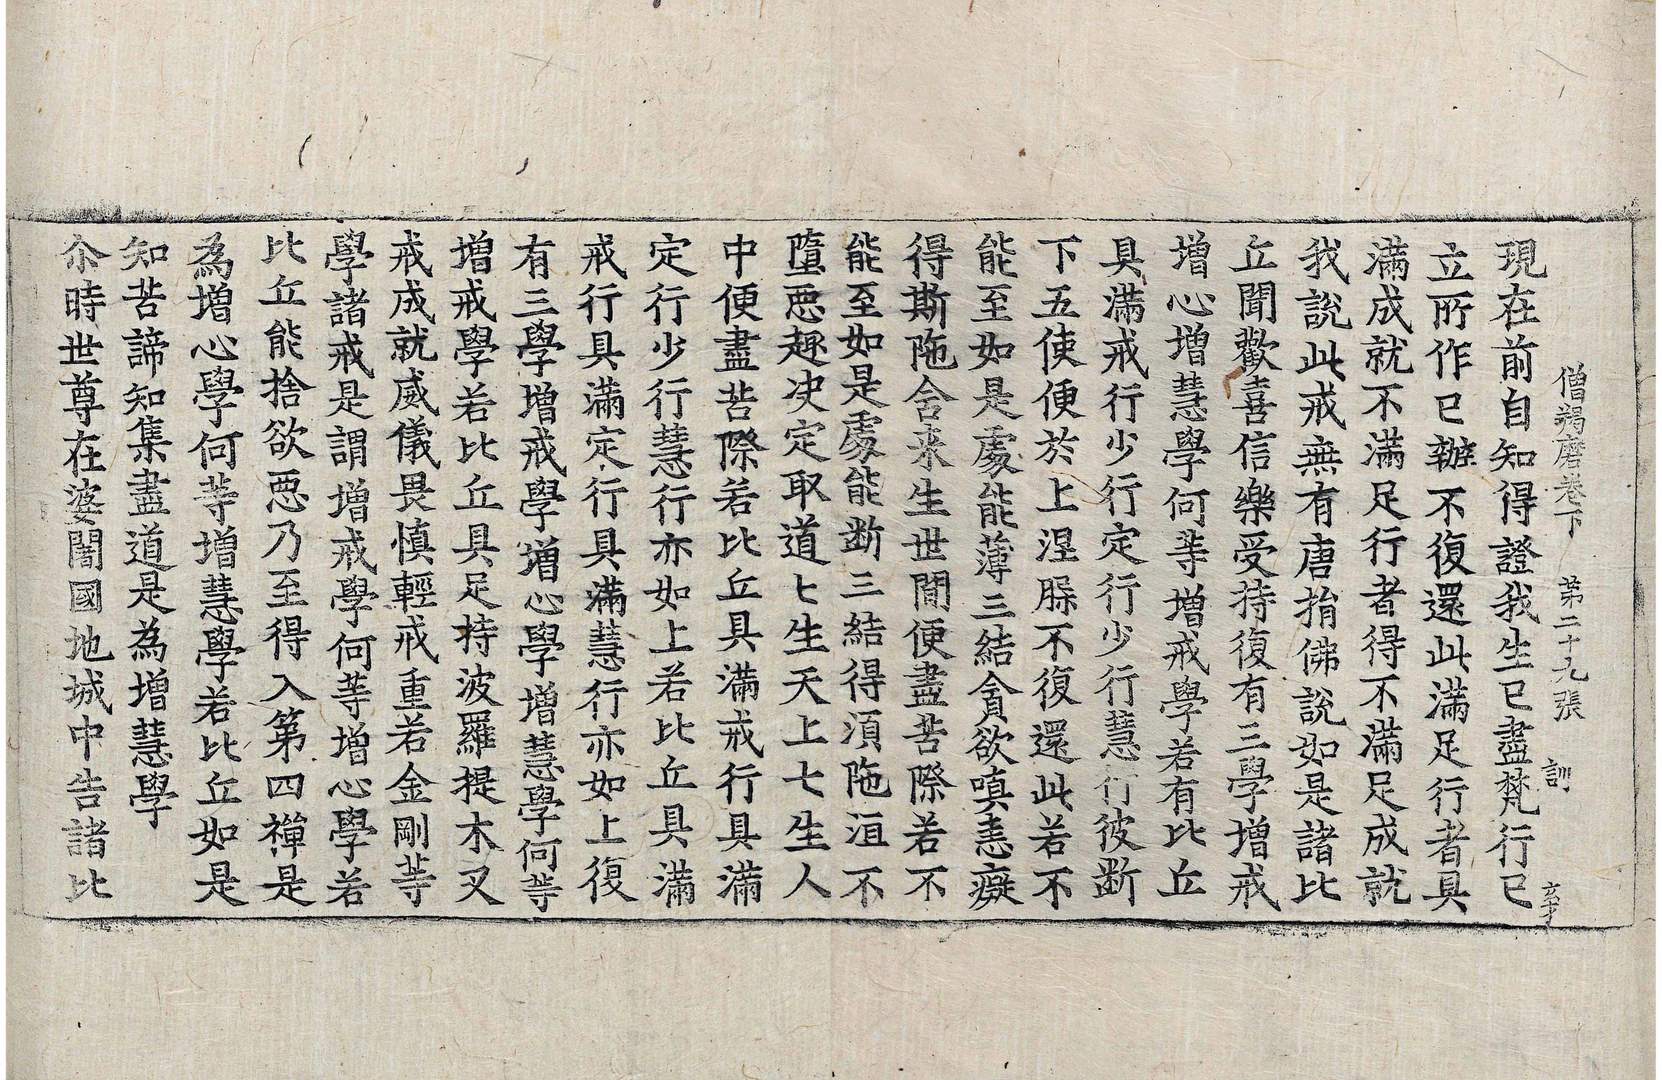 僧羯磨卷下 第二十九張 訓
現在前自知得證我生已盡梵行已
立所作已辦不復還此滿足行者具
滿成就不滿足行者得不滿足成就
我說此戒無有唐捐佛說如是諸比
丘聞歡喜信樂受持復有三學增戒
增心增慧學何等增戒學若有比丘
具滿戒行少行定行少行慧行彼斷
下五使便於上涅槃不復還此若不
能至如是處能薄三結貪欲嗔恚癡
得斯陁含来生世間便盡苦際若不
能至如是處能斷三結得湏陁洹不
墮惡趣决定取道七生天上七生人
中便盡苦際若比丘具滿戒行具滿
定行少行慧行亦如上若比丘具滿
戒行具滿定行具滿慧行亦如上復
有三學增戒學增心學增慧學何等
增戒學若比丘具足持波羅提木叉
戒成就威儀畏慎輕戒重若金剛等
學諸戒是謂增戒學何等增心學若
比丘能捨欲惡乃至得入第四禪是
為增心學何等增慧學若比丘如是
知苦諦知集盡道是為增慧學
尒時世尊在婆闍國地城中告諸比